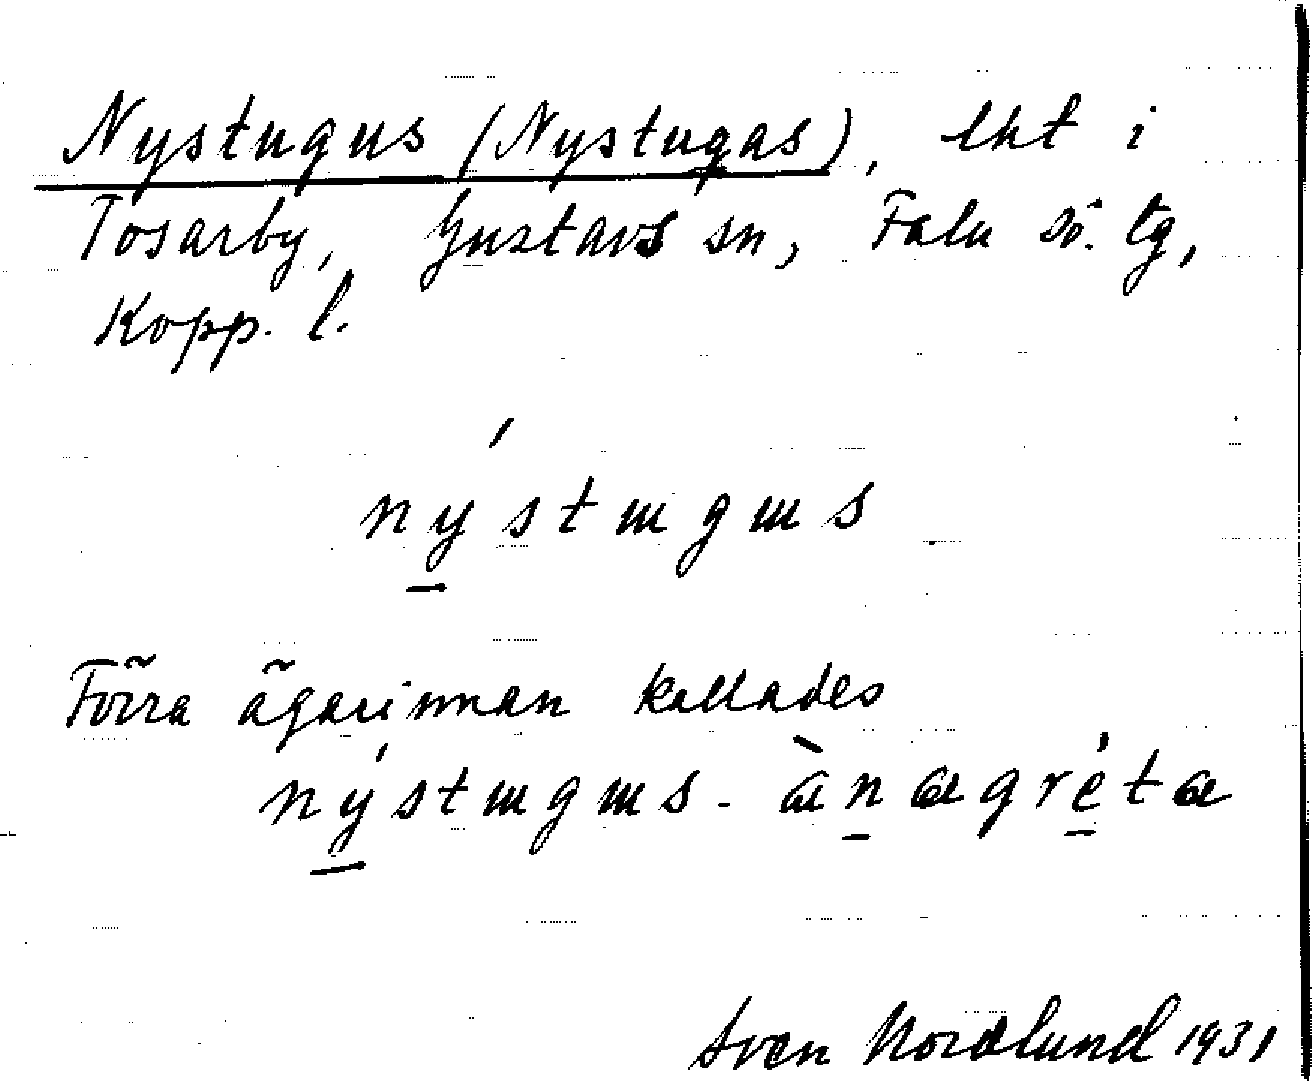 Nystugus (Nystugas), lht i
Tosarby, Gustavs sn, Falu sö. tg,
Kopp. l.
ný̱stɯgɯs
Förra ägarinnan kallades
ný̱stɯgɯs-àṉagré̱ta
Sven Nordlund 1931